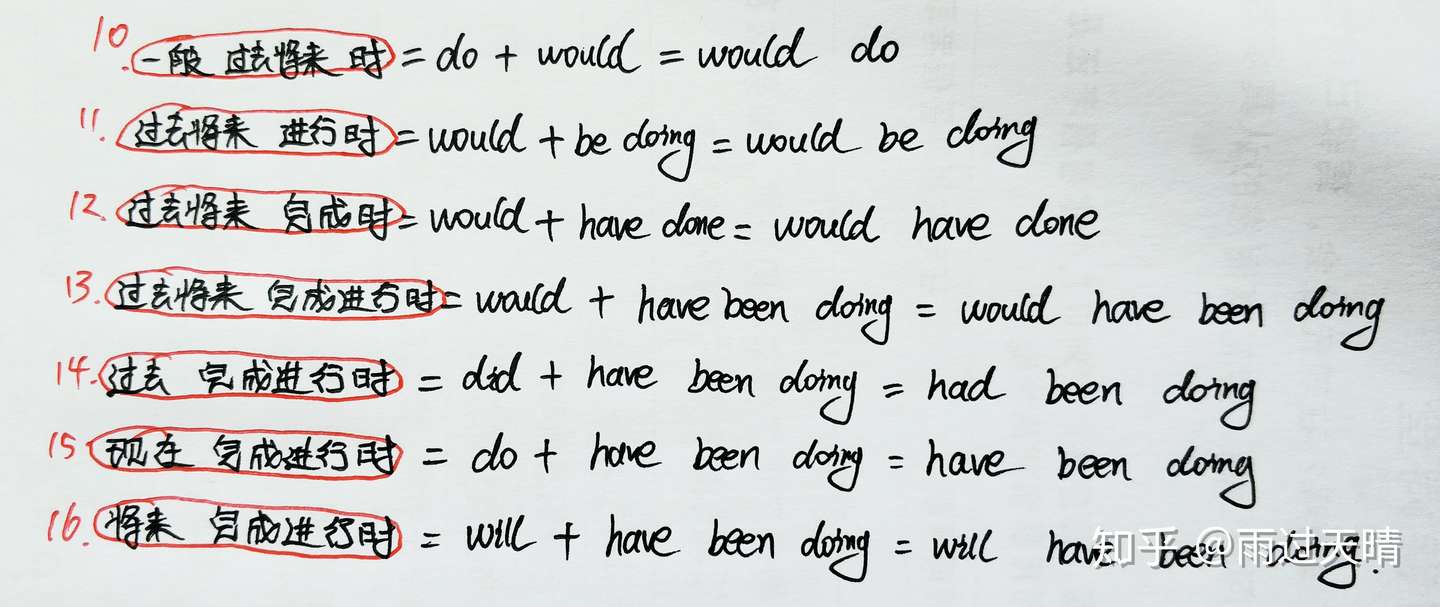 10. 一般 过去将来 时 = do + would = would do
11. 过去将来 进行时 = would + be doing = would be doing
12. 过去将来 完成时 = would + have done = would have done
13. 过去将来 完成进行时 = would + have been doing = would have been doing
14. 过去 完成进行时 = did + have been doing = had been doing
15 现在 完成进行时 = do + have been doing = have been doing
16. 将来 完成进行时 = will + have been doing = will have been doing.
知乎 @雨过天晴